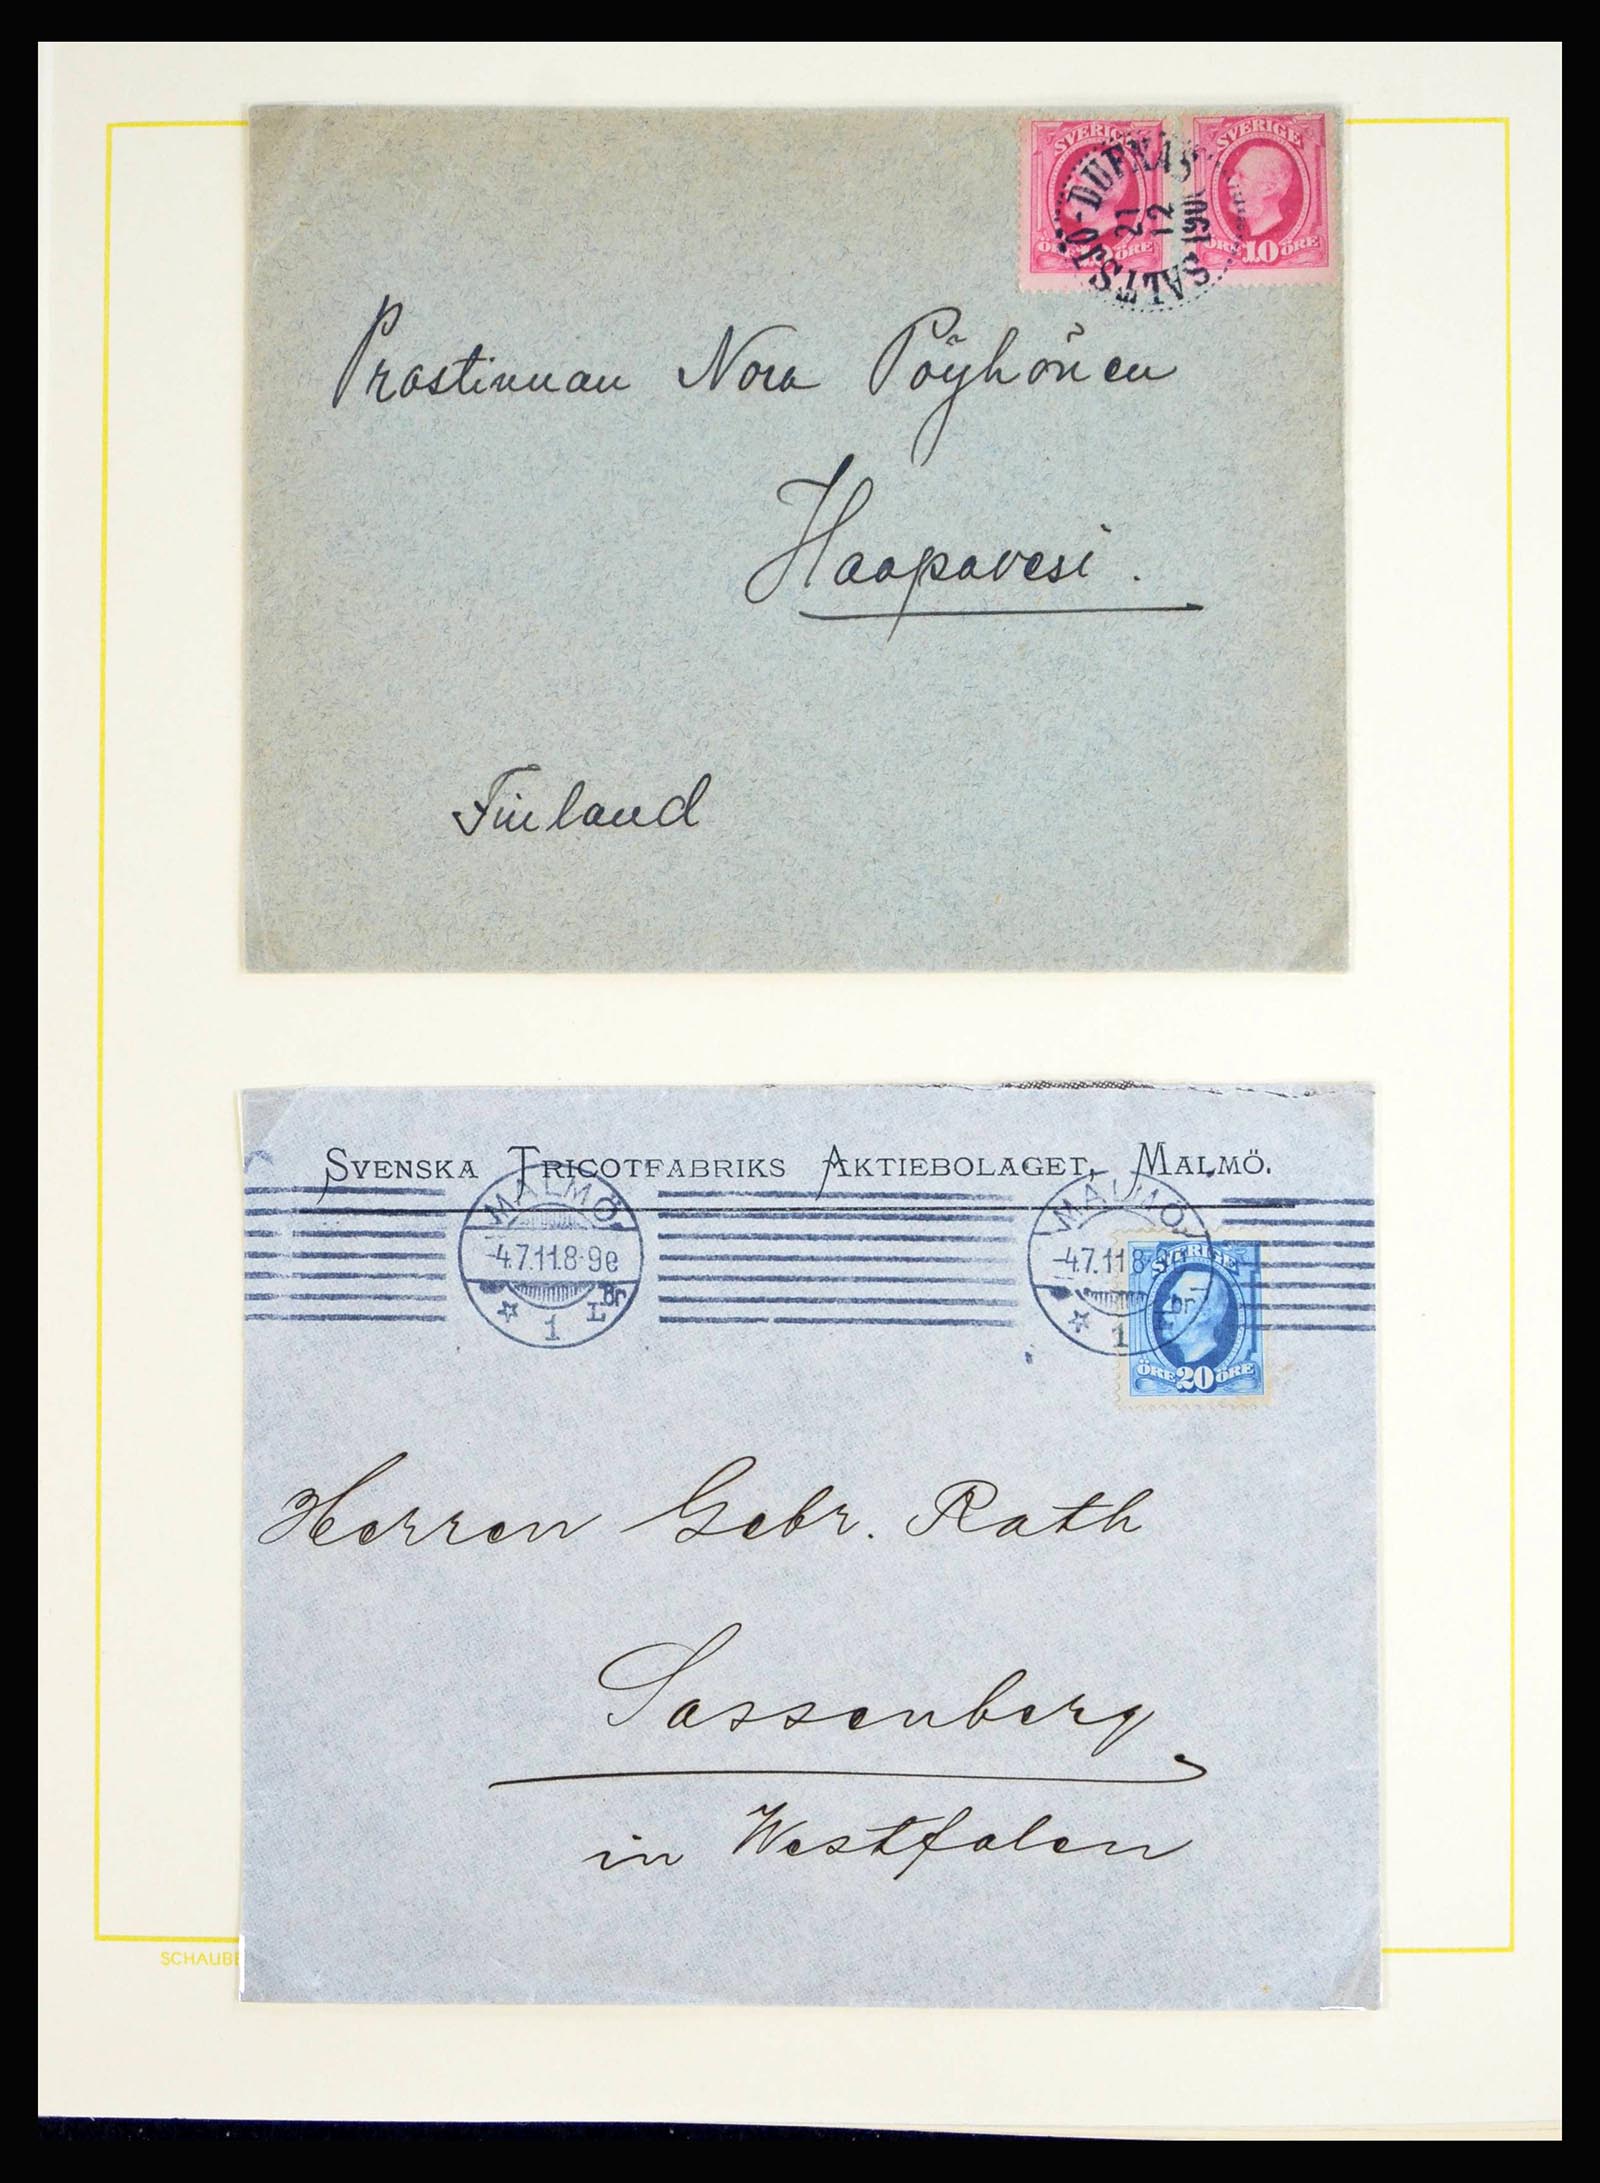 SVERIGE SVERIGE
ÖRE 10 ÖRE
SALTSJÖ-DUFNÄS
21
12
Prostinnan Nora Pöyhönen
Haapavesi.
Finland
SVENSKA TRICOTFABRIKS AKTIEBOLAGET, MALMÖ.
MALMÖ
-4.7.11.8-9e
1 L Br
MALMÖ
-4.7.11 8-9
1 Br
SVERIGE
ÖRE 20 ÖRE
Herren Gebr. Rath
Sassenberg
in Westfalen
SCHAUBE